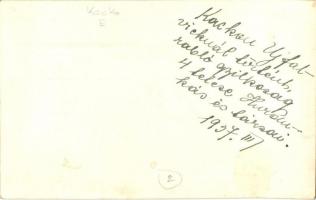 Kacko
E
Kackón Ujfal-
vicknál történt
rabló gyilkosság
4 telese
kás és társai.
1937. III
2